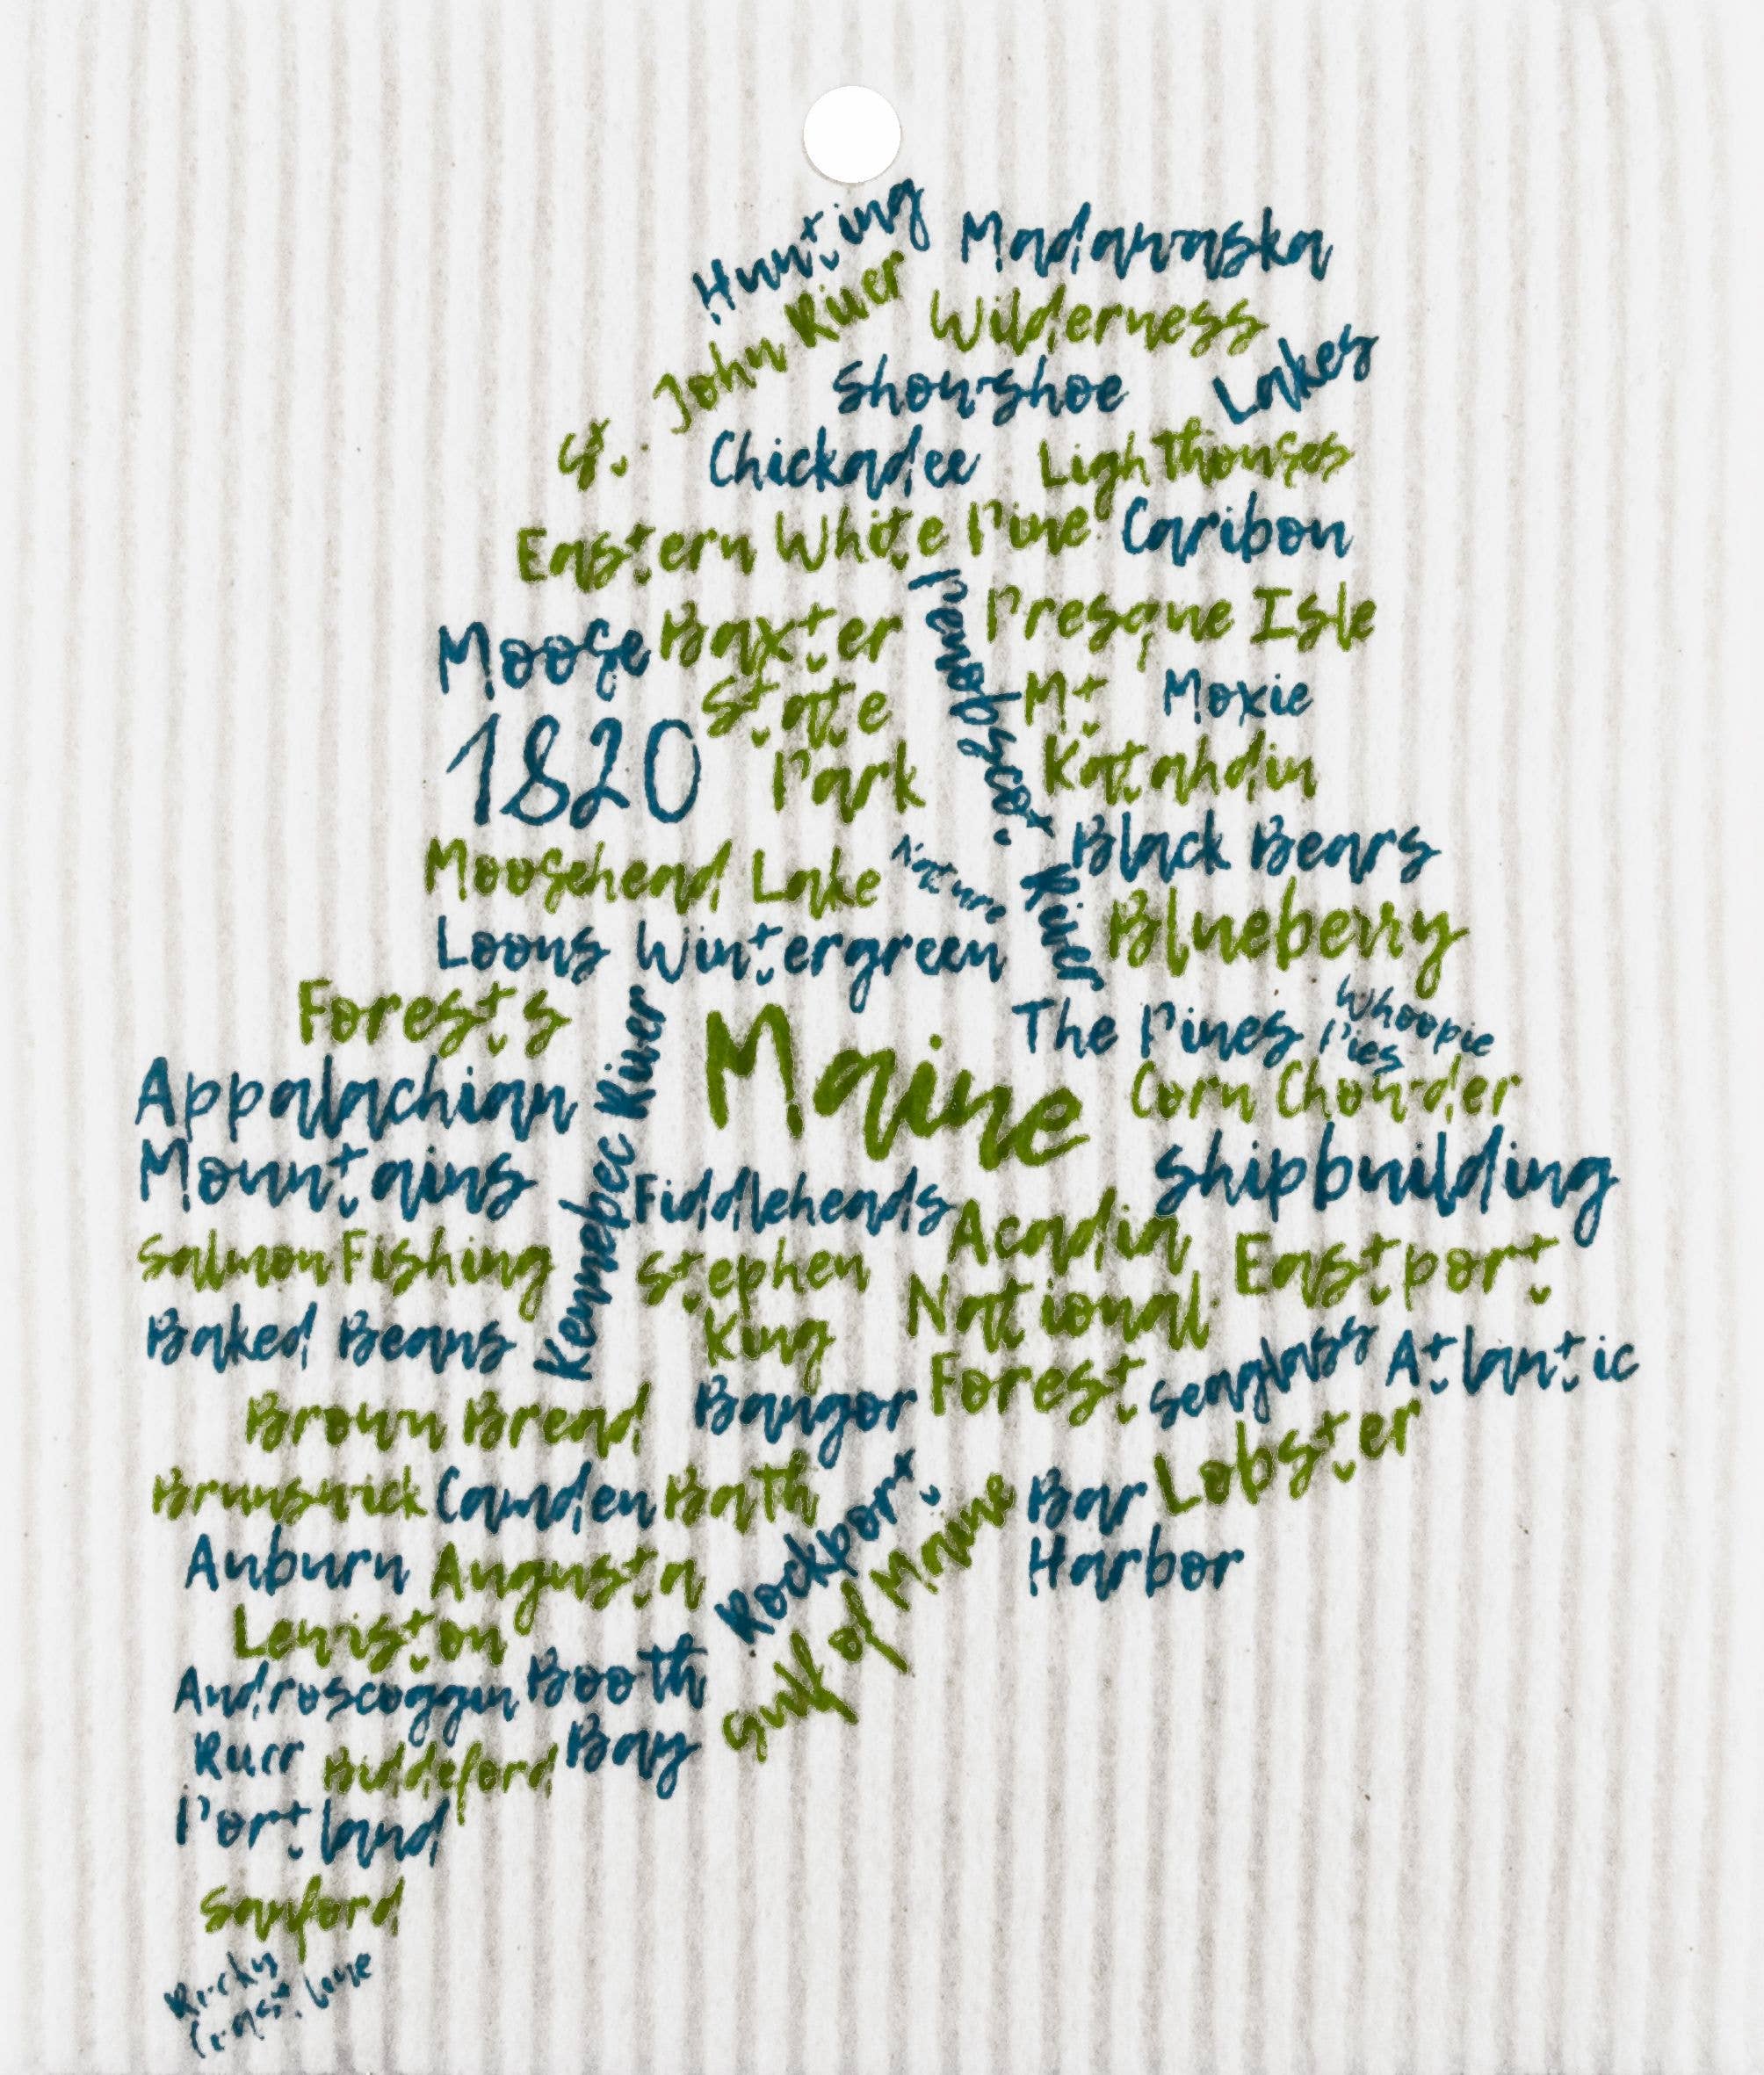 Hunting
Madawaska
St. John River
Wilderness
Snowshoe
Lakes
Chickadee
Lighthouses
Eastern White Pine
Caribou
Moose
Baxter
State
Park
Penobscot River
Presque Isle
Mt
Katahdin
Moxie
1820
Black Bears
Moosehead Lake
Nature
Blueberry
Loons
Wintergreen
Forests
The Pines
Whoopie
Pies
Maine
Kennebec River
Appalachian
Mountains
Corn Chowder
Shipbuilding
Fiddleheads
Acadia
National
Forest
Eastport
Salmon Fishing
Stephen
King
Baked Beans
Seaglass
Atlantic
Brown Bread
Bangor
Lobster
Brunswick
Camden
Bath
Rockport
Bar
Harbor
Gulf of Maine
Auburn
Augusta
Lewiston
Androscoggin
Booth
Bay
Biddeford
Portland
Sanford
Rocky
Coast line